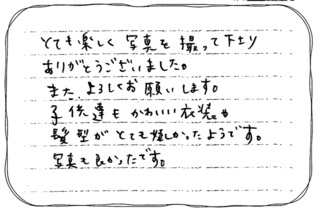 とても楽しく写真を撮って下さり
ありがとうございました。
また、よろしくお願いします。
子供達もかわいい衣装や
髪型がとても嬉しかったようです。
写真も良かったです。